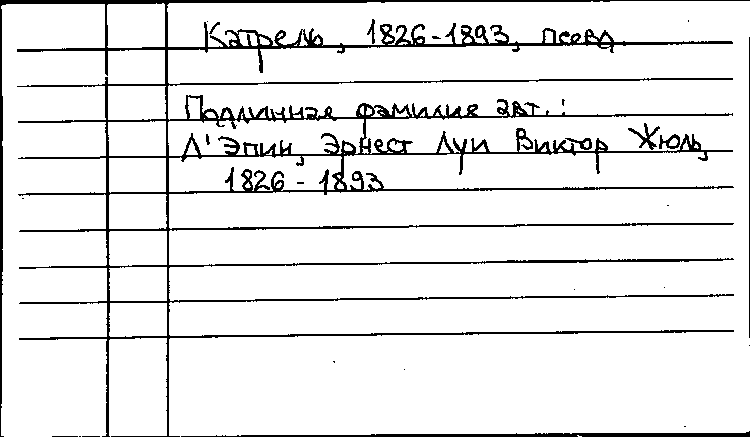 Катрель, 1826-1893, псевд.
Подлинная фамилия авт.:
Л'Эпин, Эрнест Луи Виктор Жюль,
1826 - 1893